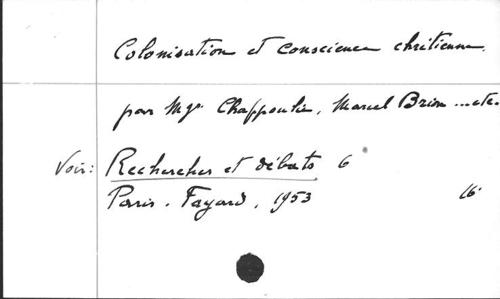 Colonisation et conscience chrétienne.
par Mgr Chappoulie, Marcel Brion ... etc.
Voir: Recherches et débats 6
Paris. Fayard, 1953 16°